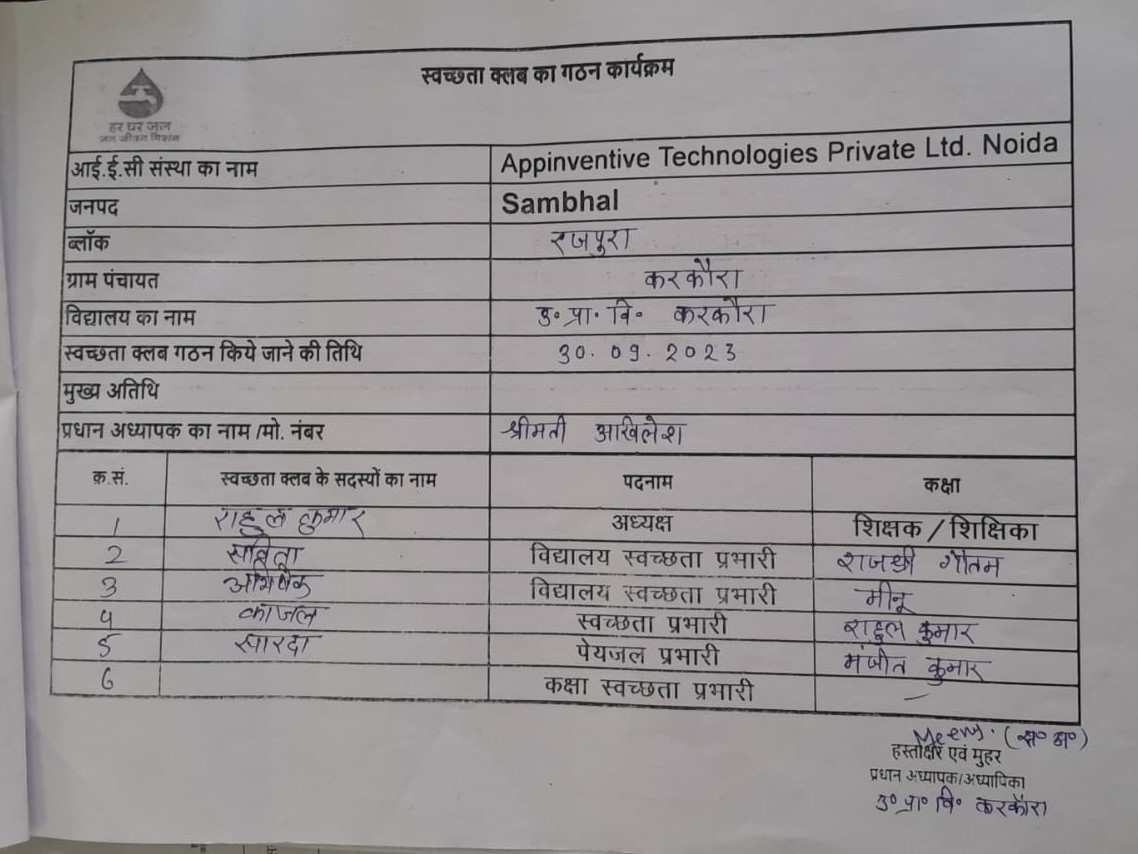 स्वच्छता क्लब का गठन कार्यक्रम
हर घर जल
जल जीवन मिशन
आई.ई.सी संस्था का नाम Appinventive Technologies Private Ltd. Noida
जनपद Sambhal
ब्लॉक रजपुरा
ग्राम पंचायत करकौरा
विद्यालय का नाम उ॰ प्रा॰ वि॰ करकौरा
स्वच्छता क्लब गठन किये जाने की तिथि 30.09.2023
मुख्य अतिथि
प्रधान अध्यापक का नाम /मो. नंबर श्रीमती अखिलेश
क्र.सं. स्वच्छता क्लब के सदस्यों का नाम पदनाम कक्षा
1 राहुल कुमार अध्यक्ष शिक्षक / शिक्षिका
2 सविता विद्यालय स्वच्छता प्रभारी राजश्री गौतम
3 अभिषेक विद्यालय स्वच्छता प्रभारी मीनू
4 काजल स्वच्छता प्रभारी राहुल कुमार
5 शारदा पेयजल प्रभारी मंजीत कुमार
6 कक्षा स्वच्छता प्रभारी –
(स॰ अ॰)
हस्ताक्षर एवं मुहर
प्रधान अध्यापक/अध्यापिका
उ॰ प्रा॰ वि॰ करकौरा